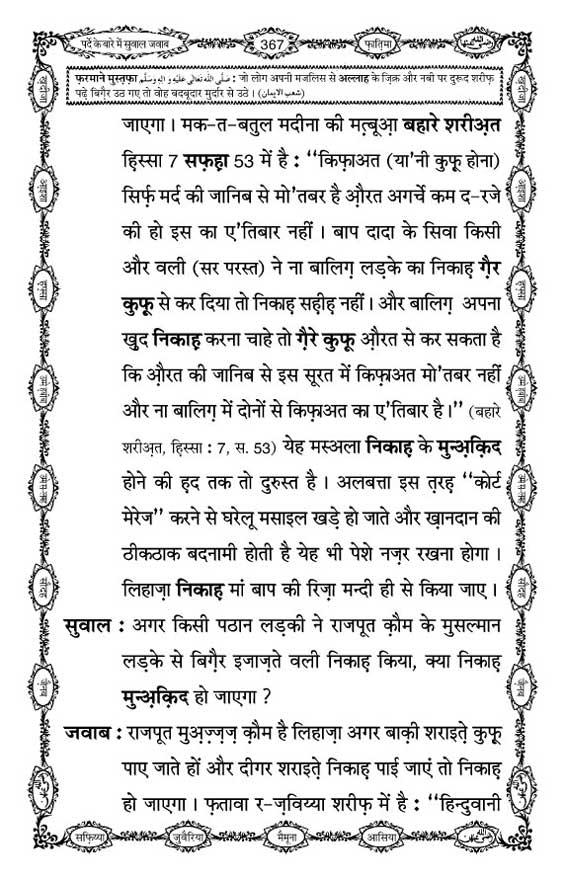 पर्दे के बारे में सुवाल जवाब
367
फ़ातिमा
फ़रमाने मुस्तफ़ा صَلَّى اللّٰهُ تَعَالٰى عَلَيْهِ وَاٰلِهٖ وَسَلَّم : जो लोग अपनी मजलिस से अल्लाह के ज़िक्र और नबी पर दुरूद शरीफ़
पढ़े बिग़ैर उठ गए तो वोह बदबूदार मुर्दार से उठे । (شعب الایمان)
जाएगा । मक-त-बतुल मदीना की मत़्बूआ़ बहारे शरीअ़त
हिस्सा 7 सफ़ह़ा 53 में है : ‘‘किफ़ाअत (या’नी कुफ़ू होना)
सिर्फ़ मर्द की जानिब से मो’तबर है औ़रत अगर्चे कम द-रजे
की हो इस का ए’तिबार नहीं । बाप दादा के सिवा किसी
और वली (सर परस्त) ने ना बालिग़ लड़के का निकाह़ ग़ैर
कुफ़ू से कर दिया तो निकाह़ सह़ीह़ नहीं । और बालिग़ अपना
खुद निकाह़ करना चाहे तो ग़ैरे कुफ़ू औ़रत से कर सकता है
कि औ़रत की जानिब से इस सूरत में किफ़ाअत मो’तबर नहीं
और ना बालिग़ में दोनों से किफ़ाअत का ए’तिबार है ।’’ (बहारे
शरीअ़त, हिस्सा : 7, स. 53) येह मस्अला निकाह़ के मुन्अ़क़िद
होने की ह़द तक तो दुरुस्त है । अलबत्ता इस त़रह़ ‘‘कोर्ट
मेरेज’’ करने से घरेलू मसाइल खड़े हो जाते और ख़ानदान की
ठीकठाक बदनामी होती है येह भी पेशे नज़र रखना होगा ।
लिहाज़ा निकाह़ मां बाप की रिज़ा मन्दी ही से किया जाए ।
सुवाल : अगर किसी पठान लड़की ने राजपूत क़ौम के मुसल्मान
लड़के से बिग़ैर इजाज़ते वली निकाह़ किया, क्या निकाह़
मुन्अ़क़िद हो जाएगा ?
जवाब : राजपूत मुअ़ज़्ज़ज़ क़ौम है लिहाज़ा अगर बाक़ी शराइत़े कुफ़ू
पाए जाते हों और दीगर शराइत़े निकाह़ पाई जाएं तो निकाह़
हो जाएगा । फ़तावा र-ज़विय्या शरीफ़ में है : ‘‘हिन्दुवानी
सफ़िय्या
जुवैरिया
मैमूना
आसिया